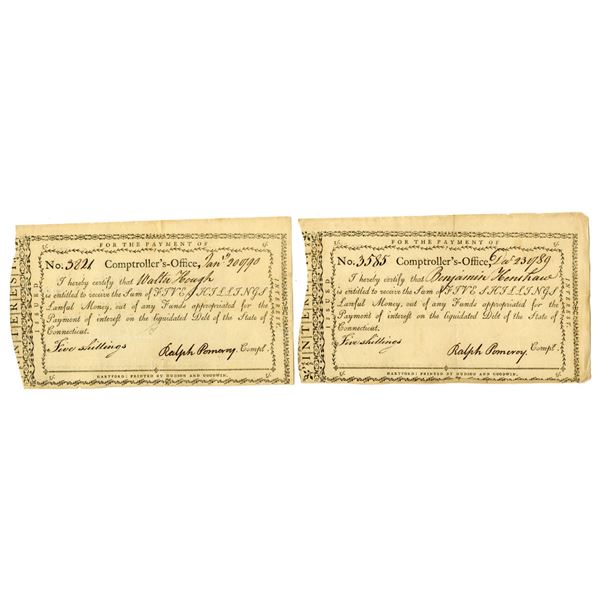 FOR THE PAYMENT OF
No. 3821 Comptroller's-Office, Jan'y 20 1790
I hereby certify that Walter Hough
is entitled to receive the Sum of FIVE SHILLINGS
Lawful Money, out of any Funds appropriated for the
Payment of interest on the liquidated Debt of the State of
Connecticut.
Five shillings
Ralph Pomeroy. Compt.
HARTFORD: PRINTED BY HUDSON AND GOODWIN.
ISSUED
INTEREST.
FOR THE PAYMENT OF
No. 3585 Comptroller's-Office, Dec 23 1789
I hereby certify that Benjamin Henshaw
is entitled to receive the Sum of FIVE SHILLINGS
Lawful Money, out of any Funds appropriated for the
Payment of interest on the liquidated Debt of the State of
Connecticut.
Five shillings
Ralph Pomeroy. Compt.
HARTFORD: PRINTED BY HUDSON AND GOODWIN.
ISSUED
INTEREST.